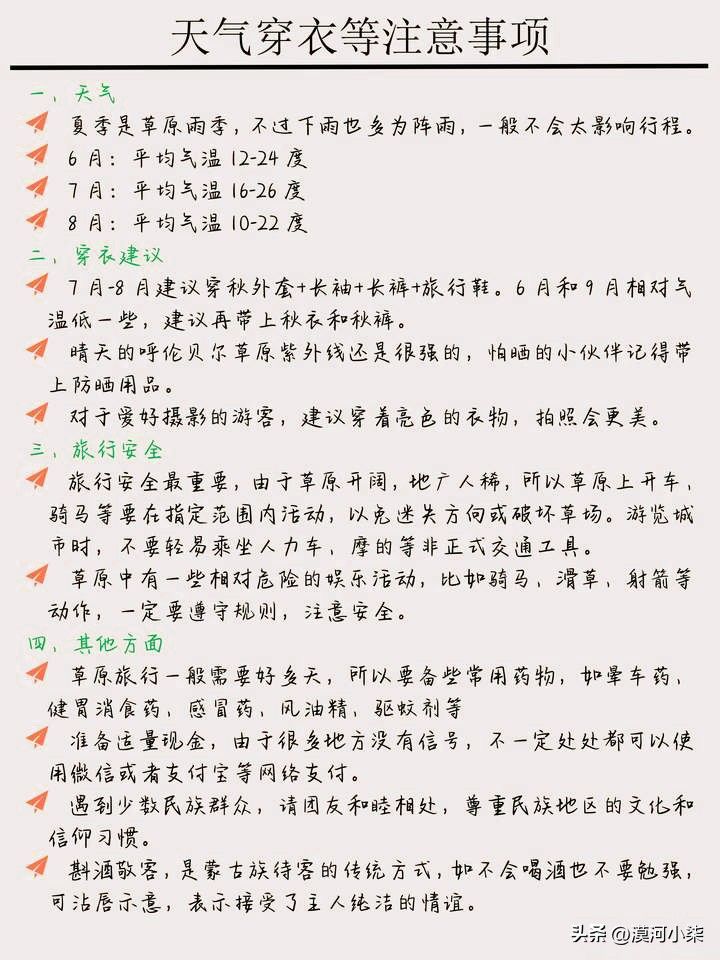 天气穿衣等注意事项
一、天气
夏季是草原雨季，不过下雨也多为阵雨，一般不会太影响行程。
6月：平均气温12-24度
7月：平均气温16-26度
8月：平均气温10-22度
二、穿衣建议
7月-8月建议穿秋外套+长袖+长裤+旅行鞋。6月和9月相对气
温低一些，建议再带上秋衣和秋裤。
晴天的呼伦贝尔草原紫外线还是很强的，怕晒的小伙伴记得带
上防晒用品。
对于爱好摄影的游客，建议穿着亮色的衣物，拍照会更美。
三、旅行安全
旅行安全最重要，由于草原开阔，地广人稀，所以草原上开车、
骑马等要在指定范围内活动，以免迷失方向或破坏草场。游览城
市时，不要轻易乘坐人力车、摩的等非正式交通工具。
草原中有一些相对危险的娱乐活动，比如骑马、滑草、射箭等
动作，一定要遵守规则，注意安全。
四、其他方面
草原旅行一般需要好多天，所以要备些常用药物，如晕车药、
健胃消食药、感冒药、风油精、驱蚊剂等
准备适量现金，由于很多地方没有信号，不一定处处都可以使
用微信或者支付宝等网络支付。
遇到少数民族群众，请团友和睦相处，尊重民族地区的文化和
信仰习惯。
斟酒敬客，是蒙古族待客的传统方式，如不会喝酒也不要勉强，
可沾唇示意，表示接受了主人纯洁的情谊。
头条@漠河小柒